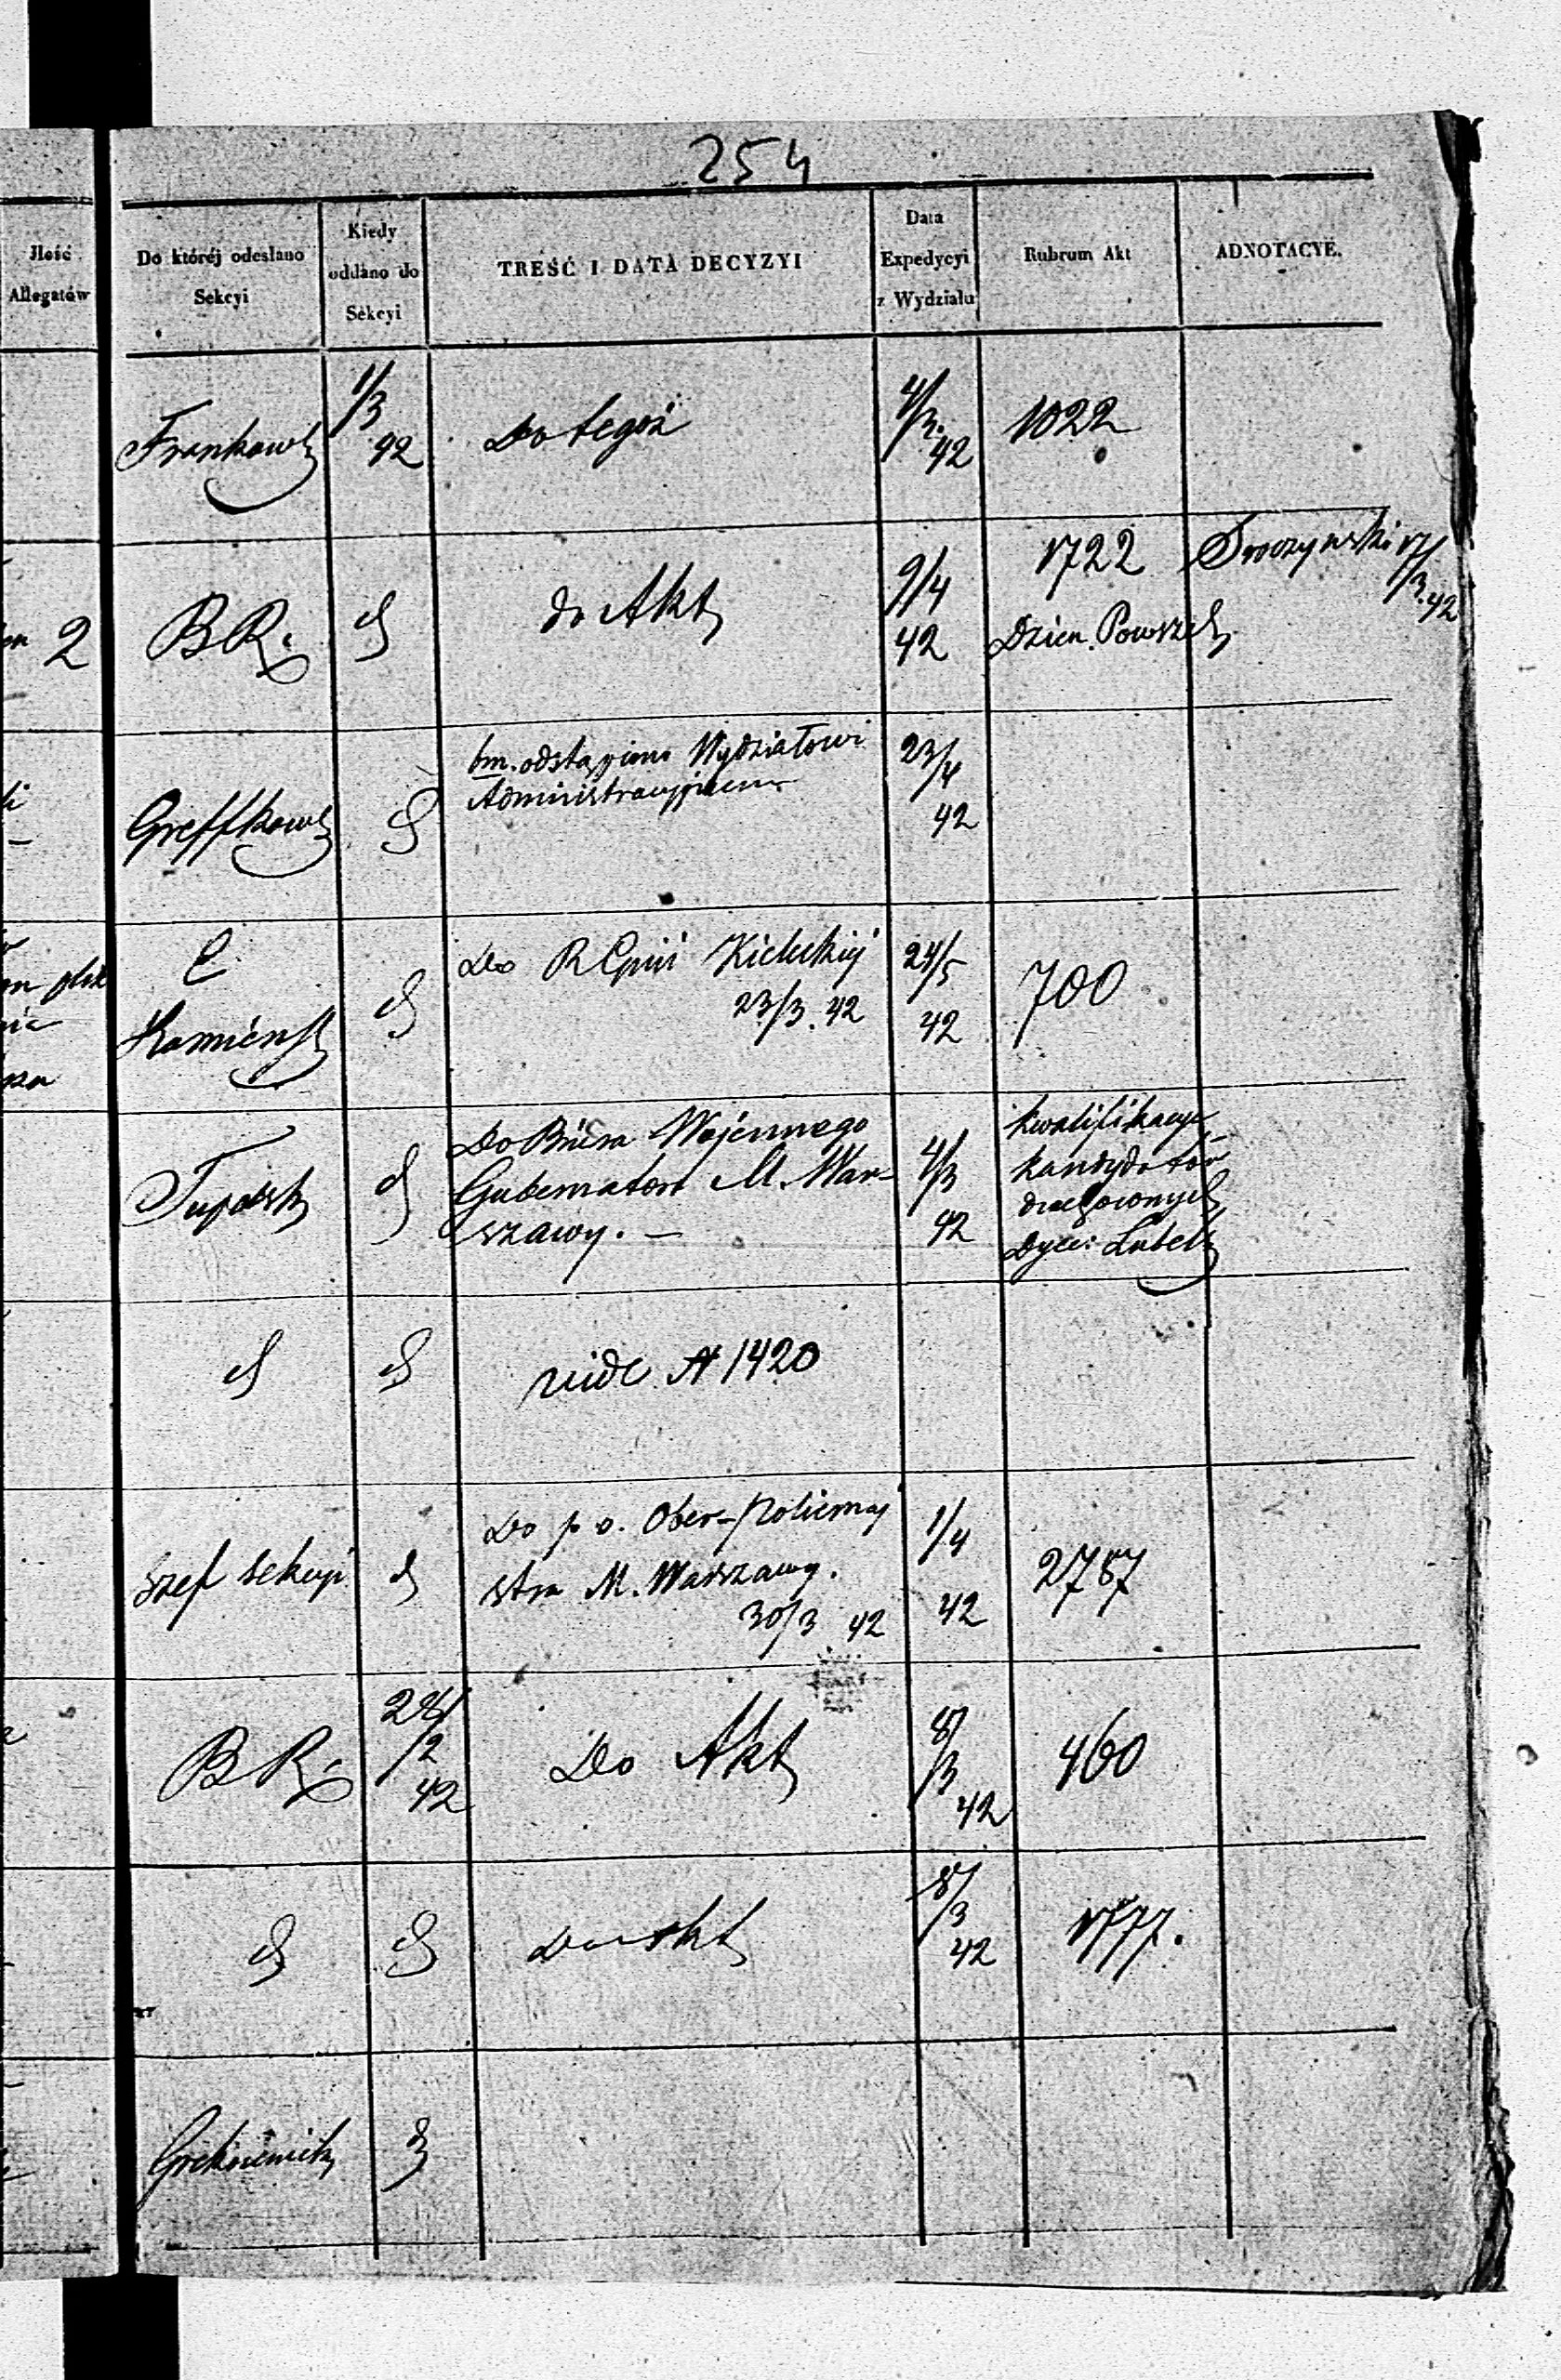 254
Jlość
Allegatów
Do któréj odesłano
Sekcyi
Kiedy
oddano do
Sekcyi
TREŚĆ I DATA DECYZYI
Data
Expedycyi
z Wydziału
Rubrum Akt
ADNOTACYE.
Frankows
1/3
42
Do tegoż
4/3.
42
1022
2
BR.
do Akt
9/4
42
1722
Dzien. Powszech
17/3.42
Greffkows
bm. odstąpiono Wydziałowi
Administracyjnemu
23/4
42
C
Kamieńsk
Do R Gnii Kieleckiej
23/3. 42
24/5
42
700
Do Biura Wojennego
Gubernatora M. War-
szawy. —
4/3
42
Kwalifikacye
kandydatów
duchownych
Dyec: Lubels
vide N 1420
Szef Sekcyi
Do p. o. Ober-Policmaj
stra M. Warszawy.
30/3 42
1/4
42
2787
BR.
28/2
42
Do Akt
8/3
42
460
Do Akt
8/3
42
1777.